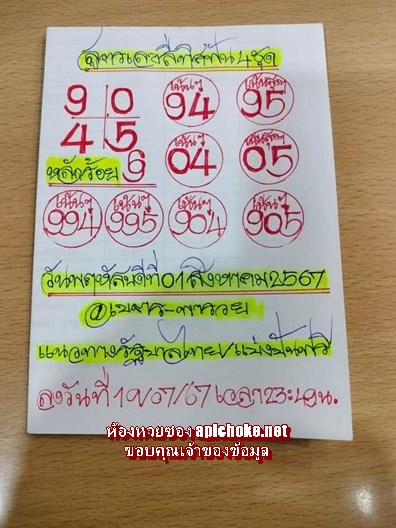 สูตรเลขสี่ทิศฟัน 4 ชุด
9 0
4 5
เน้นๆ 94
เน้นสุดๆ 95
เน้นๆ 04
เน้นสุดๆ 05
หลักร้อย 9
เน้นๆ 994
เน้นๆ 995
เน้นๆ 904
เน้นๆ 905
วันพฤหัสบดีที่ 01 สิงหาคม 2567
แนวทางรัฐบาลไทย/แบ่งปันฟรี
ลงวันที่ 19/07/67 เวลา 23:
น.
ห้องหวยซอง apichoke.net
ขอบคุณเจ้าของข้อมูล